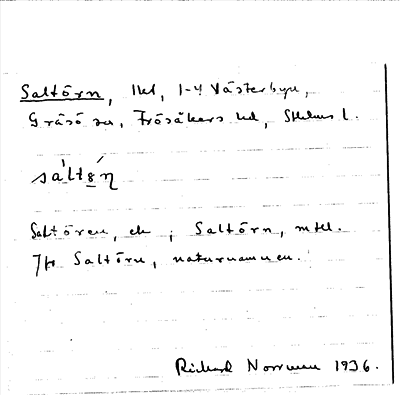 Saltörn, 1 hl, 1-4 Västerbyn,
Gräsö sn, Frösåkers hd, Sthlms l.
sàltö́ŋ
Saltören, ek ; Saltörn, mtl.
Jfr Saltörn, naturnamnen.
Richard Norrman 1936.